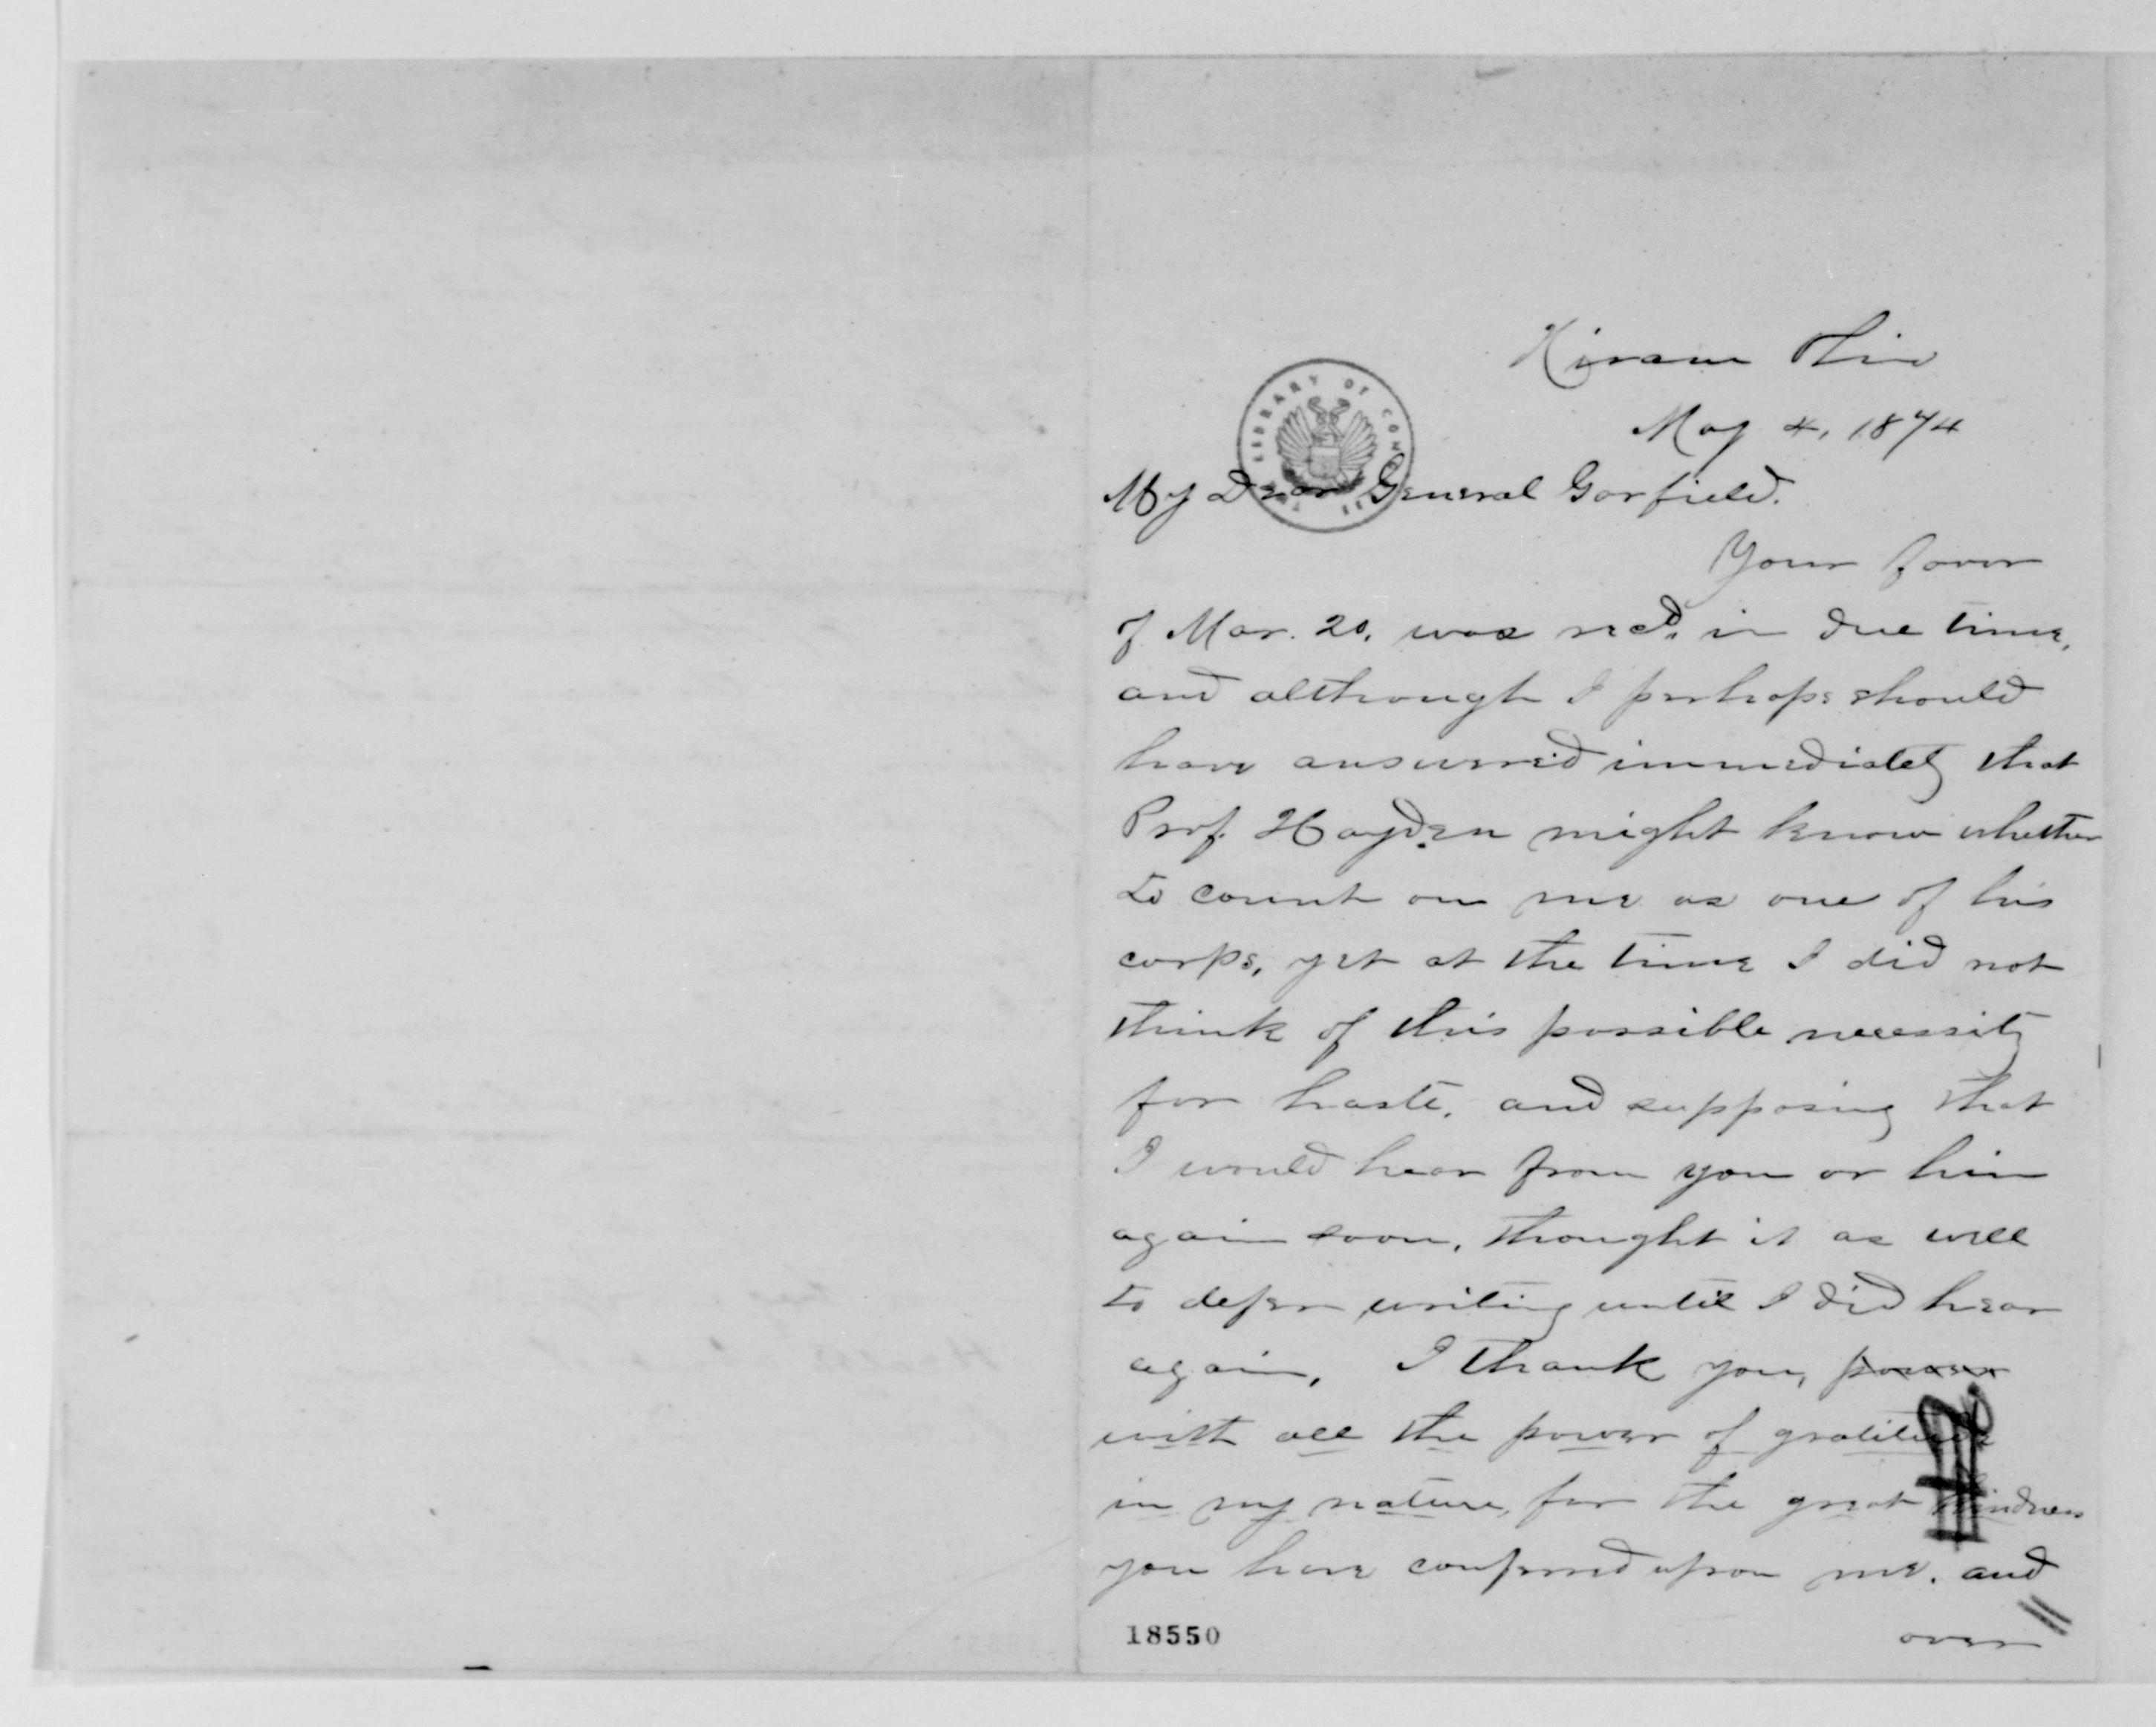 Hiram Ohio
May 4, 1874
THE LIBRARY OF CONGRESS
My Dear General Garfield.
Your favor
of Mar. 20. was recd. in due time,
and although I perhaps should
have answered immediately that
Prof. Hayden might know whether
to count on me as one of his
corps, yet at the time I did not
think of this possible necessity
for haste, and supposing that
I would hear from you or him
again soon, thought it as well
to defer writing until I did hear
again. I thank you, power
with all the power of gratitude
in my nature, for the great kindness
you have conferred upon me. and
18550
over